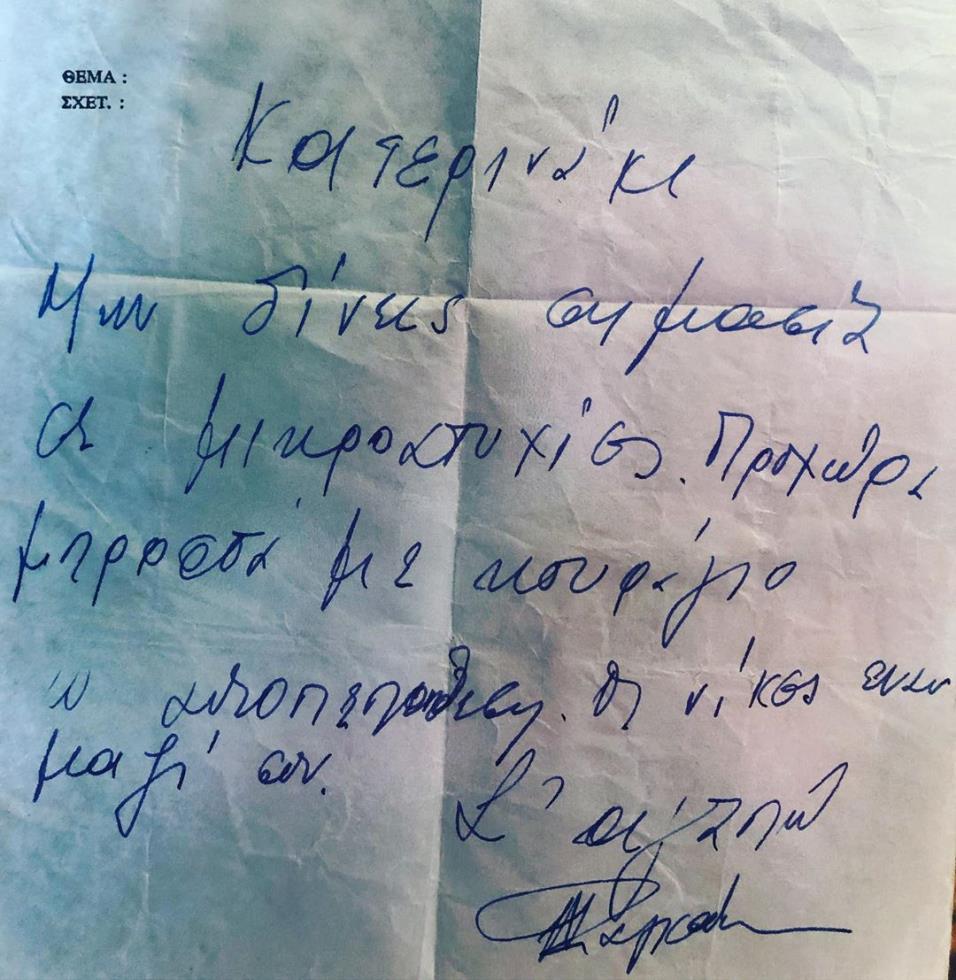 ΘΕΜΑ :
ΣΧΕΤ. :
Κατερινάκι
Μην δίνεις σημασία
σε μικροατυχίες. Προχώρα
μπροστά με κουράγιο
αυτοπεποίθηση. Οι νίκες είναι
μαζί σου.
Σ' αγαπώ